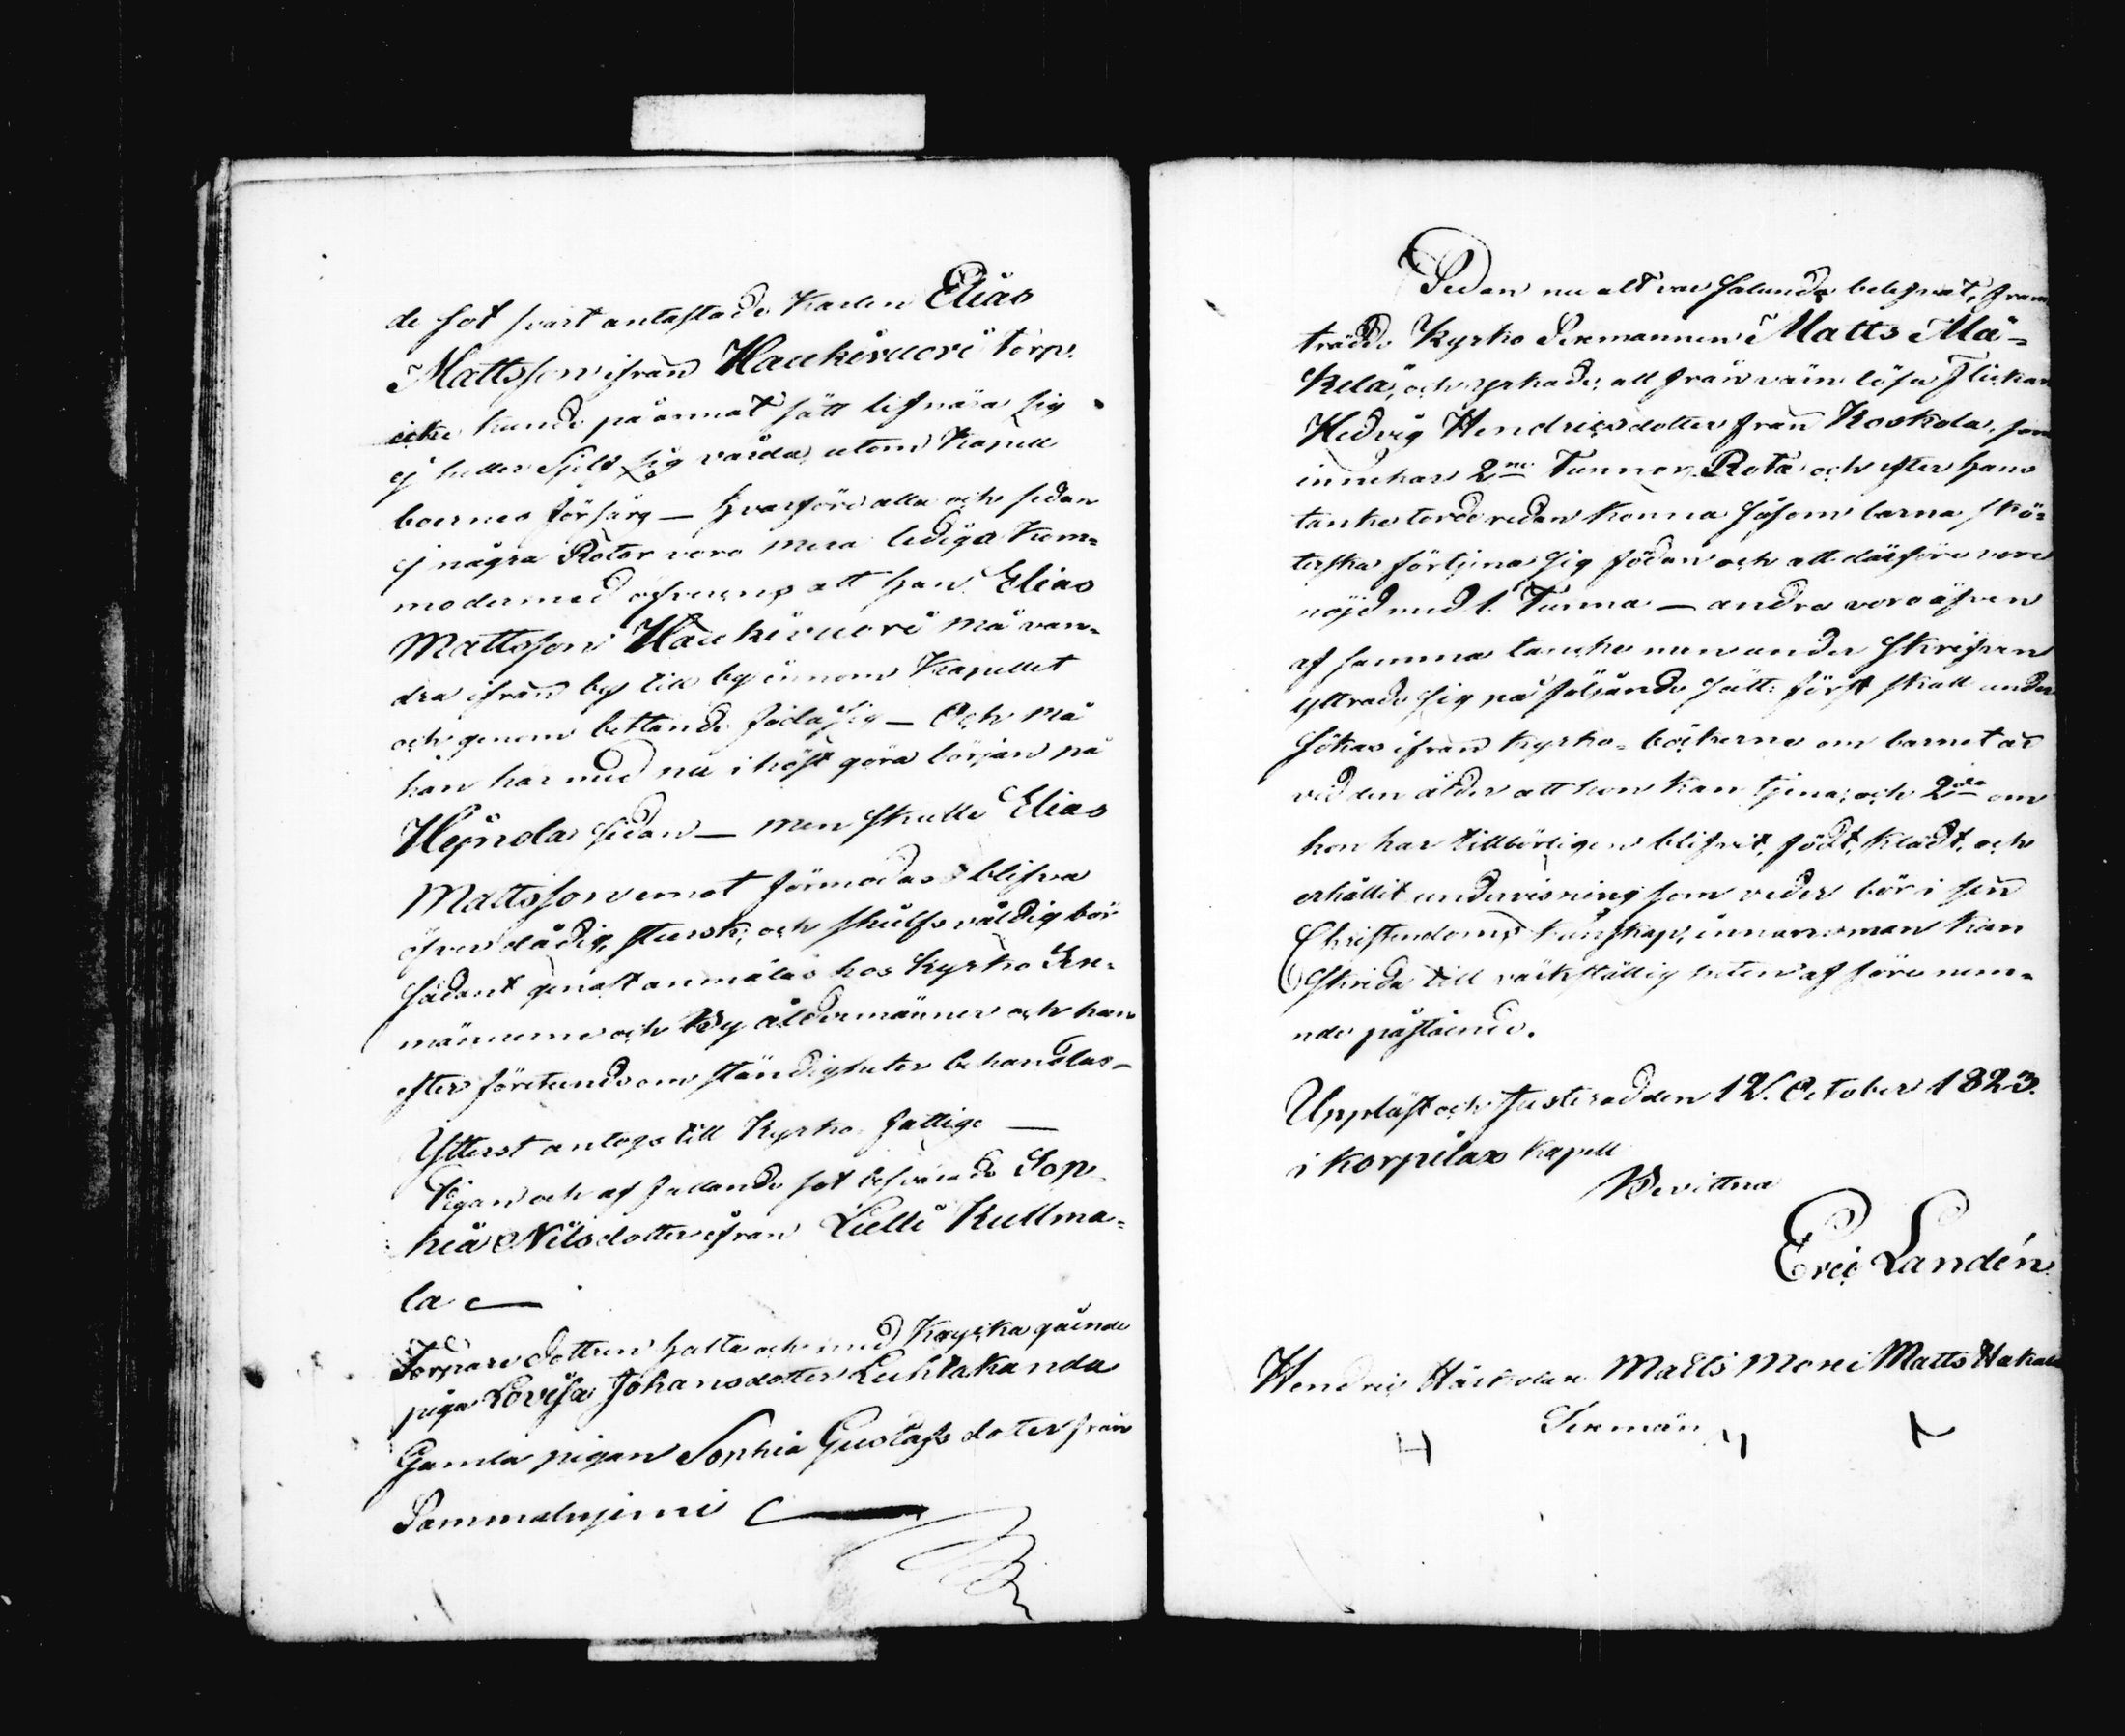 de sot svart antastade Karlen Elias
Mattsson ifrån Haukivuori torp.
icke kunde på annat sätt lifnära sig
ej heller Sjelf sig vårda, utom Kapell
boernes försårg — hvarföre alla och sedan
ej några Rotar voro mera lediga kom-
mo dermed öfverens att han Elias
Mattsson Haukivuori må van-
dra ifrån by till by innom Kapellet
och genom bettlande föda sig — Och må
han här med nu i höst göra början på
Heinola sedan — men skulle Elias
Mattsson emot förmodan blifva
öfverdådig, stursk, och skulfsvåldig bör
sådant genast anmälas hos Kyrko Sex-
männerne och By åldermännen och han
efter företeende omständigheter behandlas —
Ytterst antogs till Kyrko fattige —
Pigan och af fallande sot besvärade Sop-
hia Nilsdotter ifrån Lielli Kullma-
la —
Torpare dottren halta och med Krycka gående
piga Lovisa Johansdotter Luhtakanda
Gamla pigan Sophia Gustafsdotter från
Pammelnjemi —
Sedan nu alt var sålunda belefvat, fram
trädde Kyrko Sexmannen Matts Mä-
kelä, och yrkade, att från värnlösa Flickan
Hedvig Hendricsdotter från Koskola, som
innehar 2ne Tunnor Rota och efter hans
tanke torde redan kunna såsom barna skö-
terska förtjena sig födan och att därföre vore
nöjd med 1. Tunna — andra voro äfven
af samma tancke men under skrifven
yttrade sig på följande sätt: först skall under
sökas ifrån kyrko-böckerne om barnet är
vid den ålder att hon kan tjena; och 2dra om
hon har tillbörligen blifvit, född, klädt, och
erhållit undervisning som veder bör i sin
Christendoms kunskap, innan man kan
skrida till värkställigheten af före nem-
nde påstående.
Uppläst och Justerad den 12. October 1823.
i Korpilax Kapell
Bevittna
Eric Landén
Hendric Matts Moni Matts Hakala
Sexmän